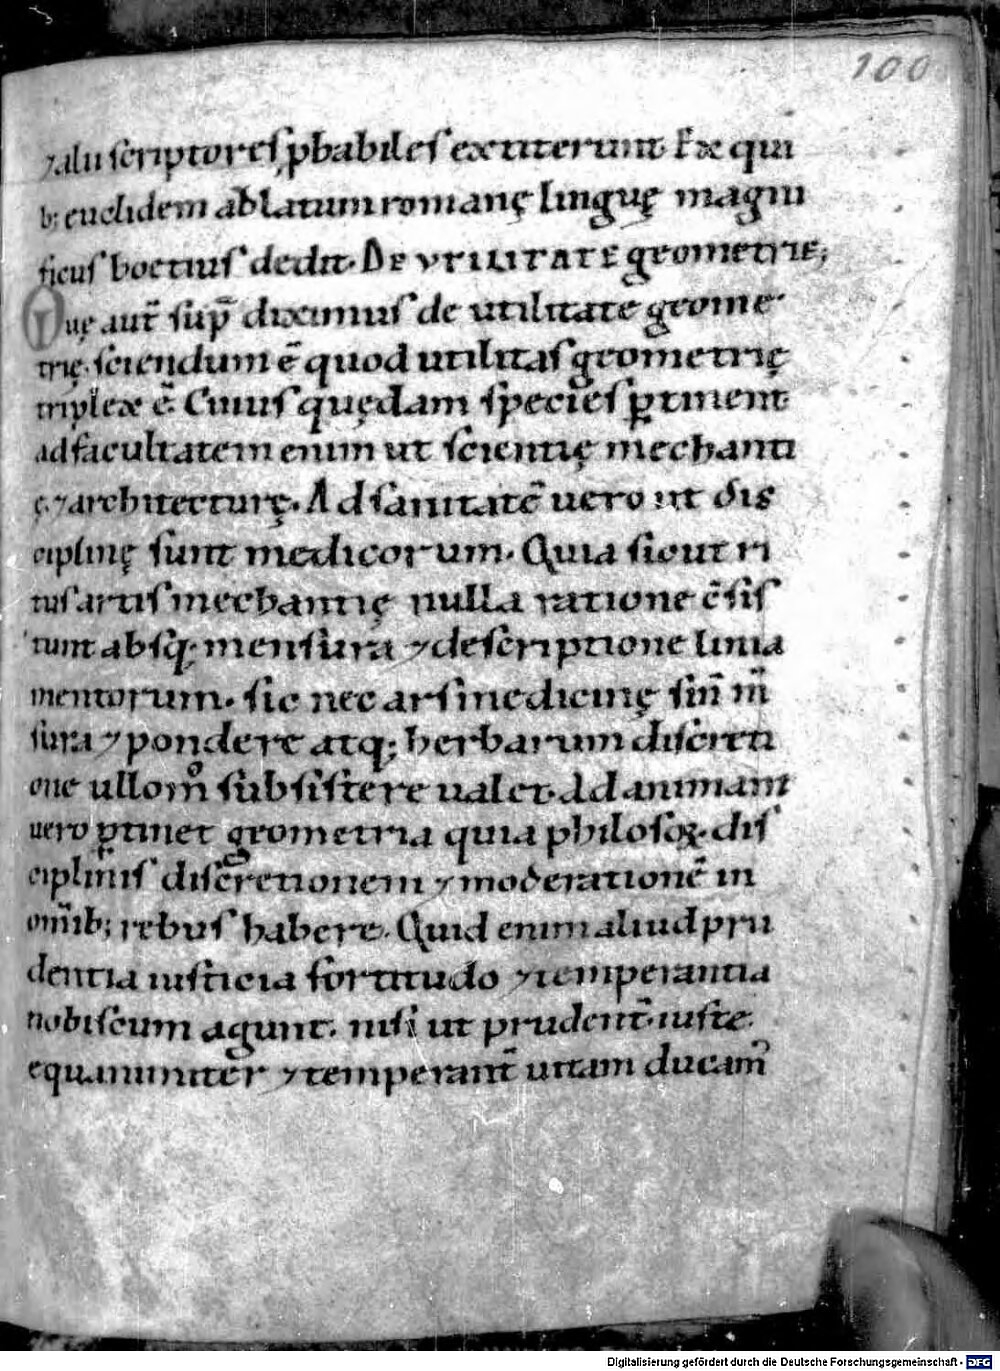 100
⁊ alii scriptores ꝓbabiles extiterunt. Ex qui
b; euclidem ablatum romanę linguę magni
ficus boetius dedit. De VTILITATE geometrie;
Quę aut̄ sup̄ diximus de utilitate geome
trię. sciendum ē quod utilitas geometrię
triplex ē. Cuius quędam species ꝑtinent
ad facultatem enim ut scientię mechani
ę. ⁊ architecturę. Ad sanitatē uero ut dis
ciplinę sunt medicorum. Quia sicut ri
tus artis mechanię nulla ratione c̄sis
tunt absq; mensura ⁊ descriptione linia
mentorum. sic nec ars medicinę sin̄ m̄
sura ⁊ pondere atq; herbarum discreti
one ullom̊ subsistere ualet. Ad animam
uero ꝑtinet geometria quia philosoꝝ. dis
ciplinis discretionem ⁊ moderationē in
om̄ib; rebus habere. Quid enim aliud pru
dentia iusticia fortitudo ⁊ temperantia
nobiscum agunt. nisi ut prudent̄. iuste.
equanimiter ⁊ temperant̄ uitam ducam᷒
Digitalisierung gefördert durch die Deutsche Forschungsgemeinschaft - DFG